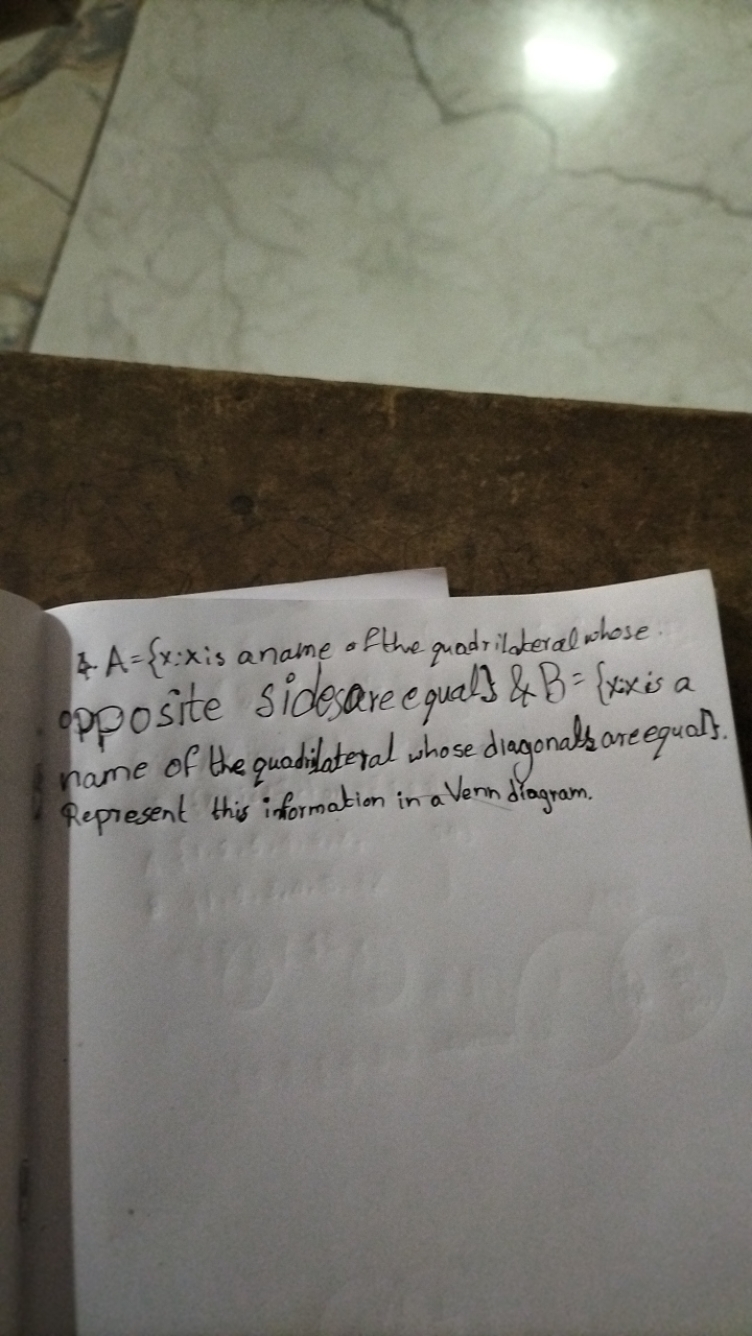 4. A={x:x is a name of the quadrilateral whose
opposite sides are equal} & B= {x:x is a
name of the quadrilateral whose diagonals are equal}.
Represent this information in a Venn diagram.